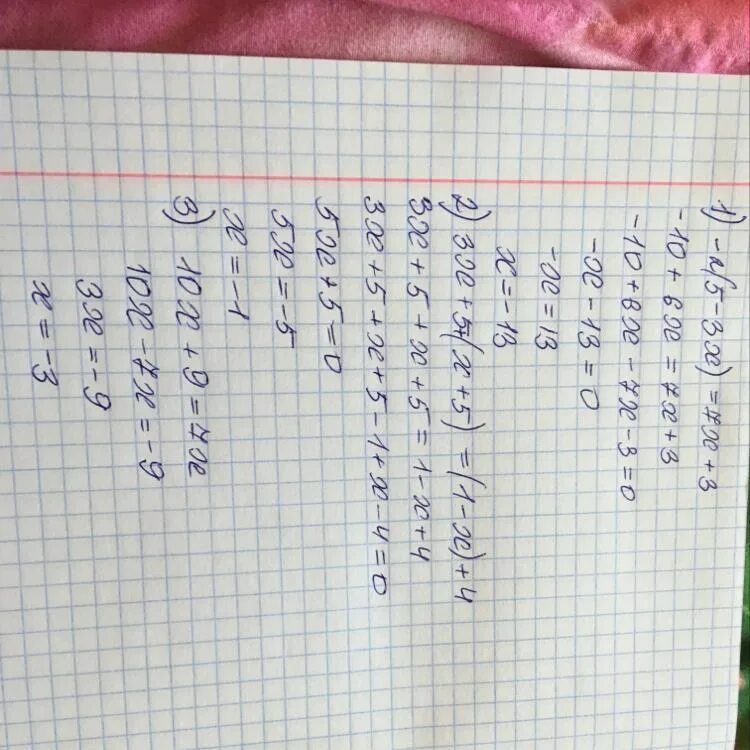 1) -2(5-3x)=7x+3
-10+6x=7x+3
-10+6x-7x-3=0
-x-13=0
-x=13
x=-13
2) 3x+5+(x+5)=(1-x)+4
3x+5+x+5=1-x+4
3x+5+x+5-1+x-4=0
5x+5=0
5x=-5
x=-1
3) 10x+9=7x
10x-7x=-9
3x=-9
x=-3